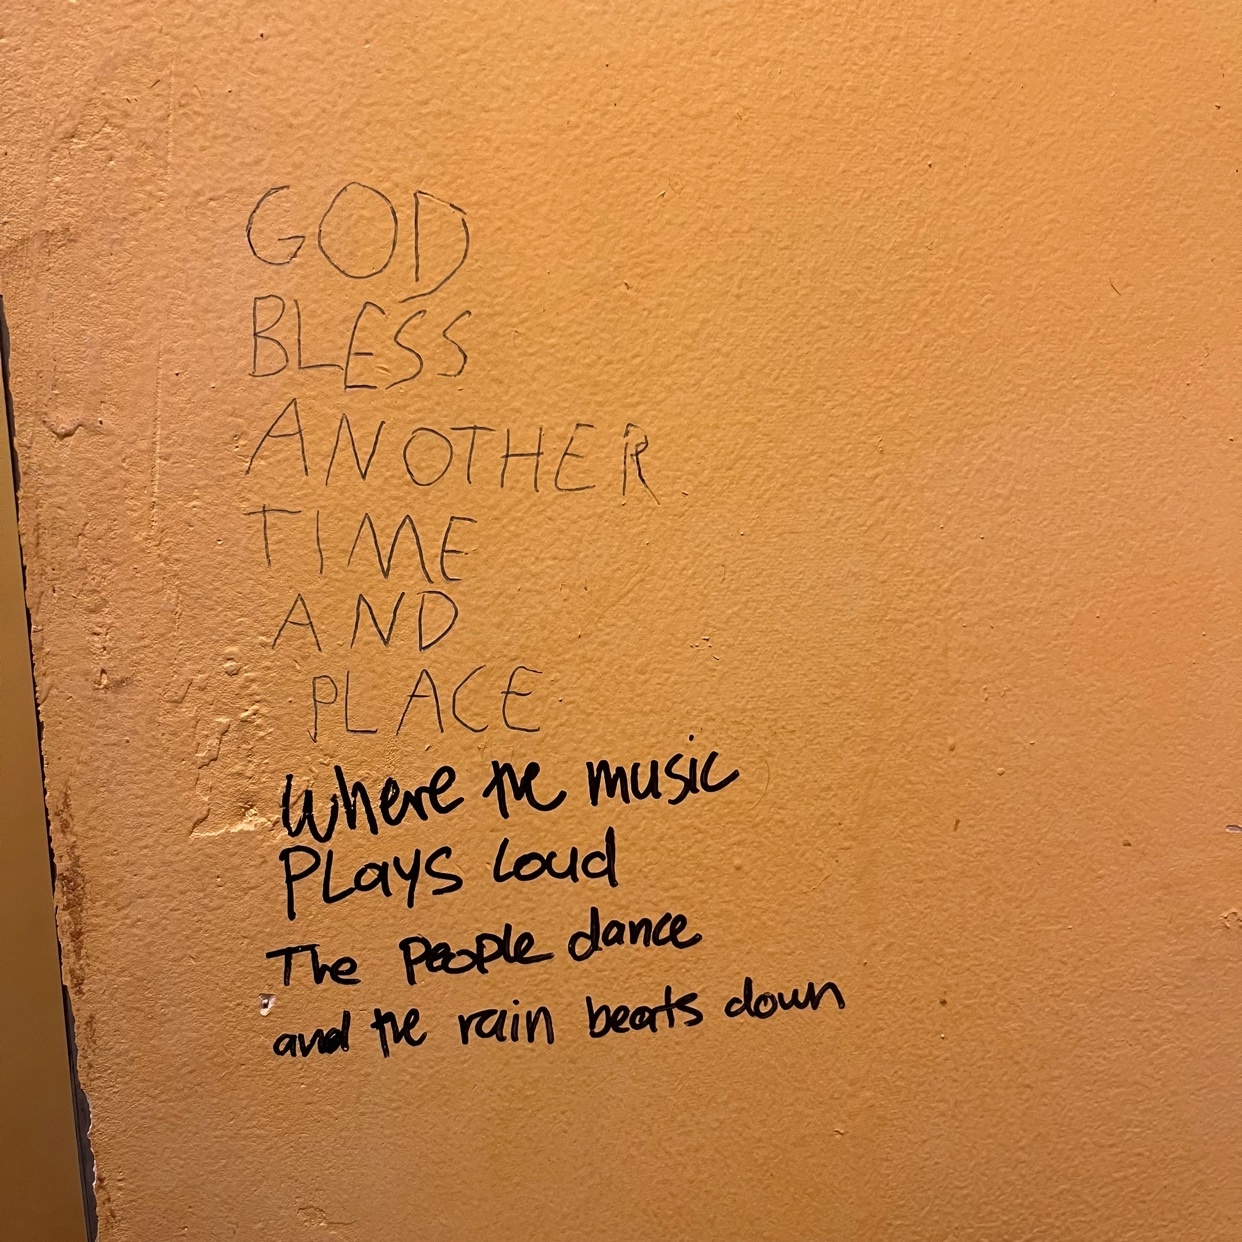 GOD
BLESS
ANOTHER
TIME
AND
PLACE
Where the music
PLays Loud
The People dance
and the rain beats down